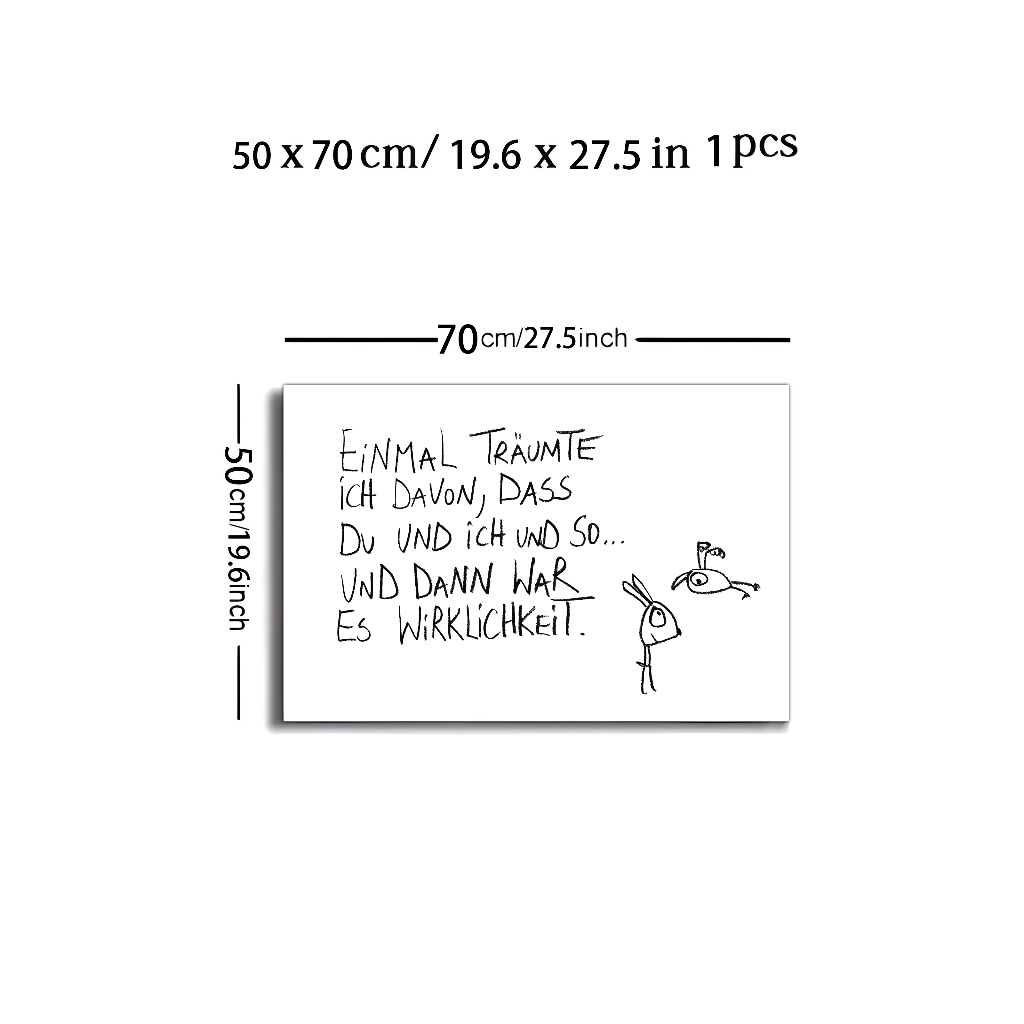 50 x 70 cm/ 19.6 x 27.5 in 1 pcs
70cm/27.5inch
50cm/19.6inch
EiNMAL TRÄUMTE
iCH DAVON, DASS
DU UND iCH UND SO...
UND DANN WAR
ES WiRKLiCHKEiT.